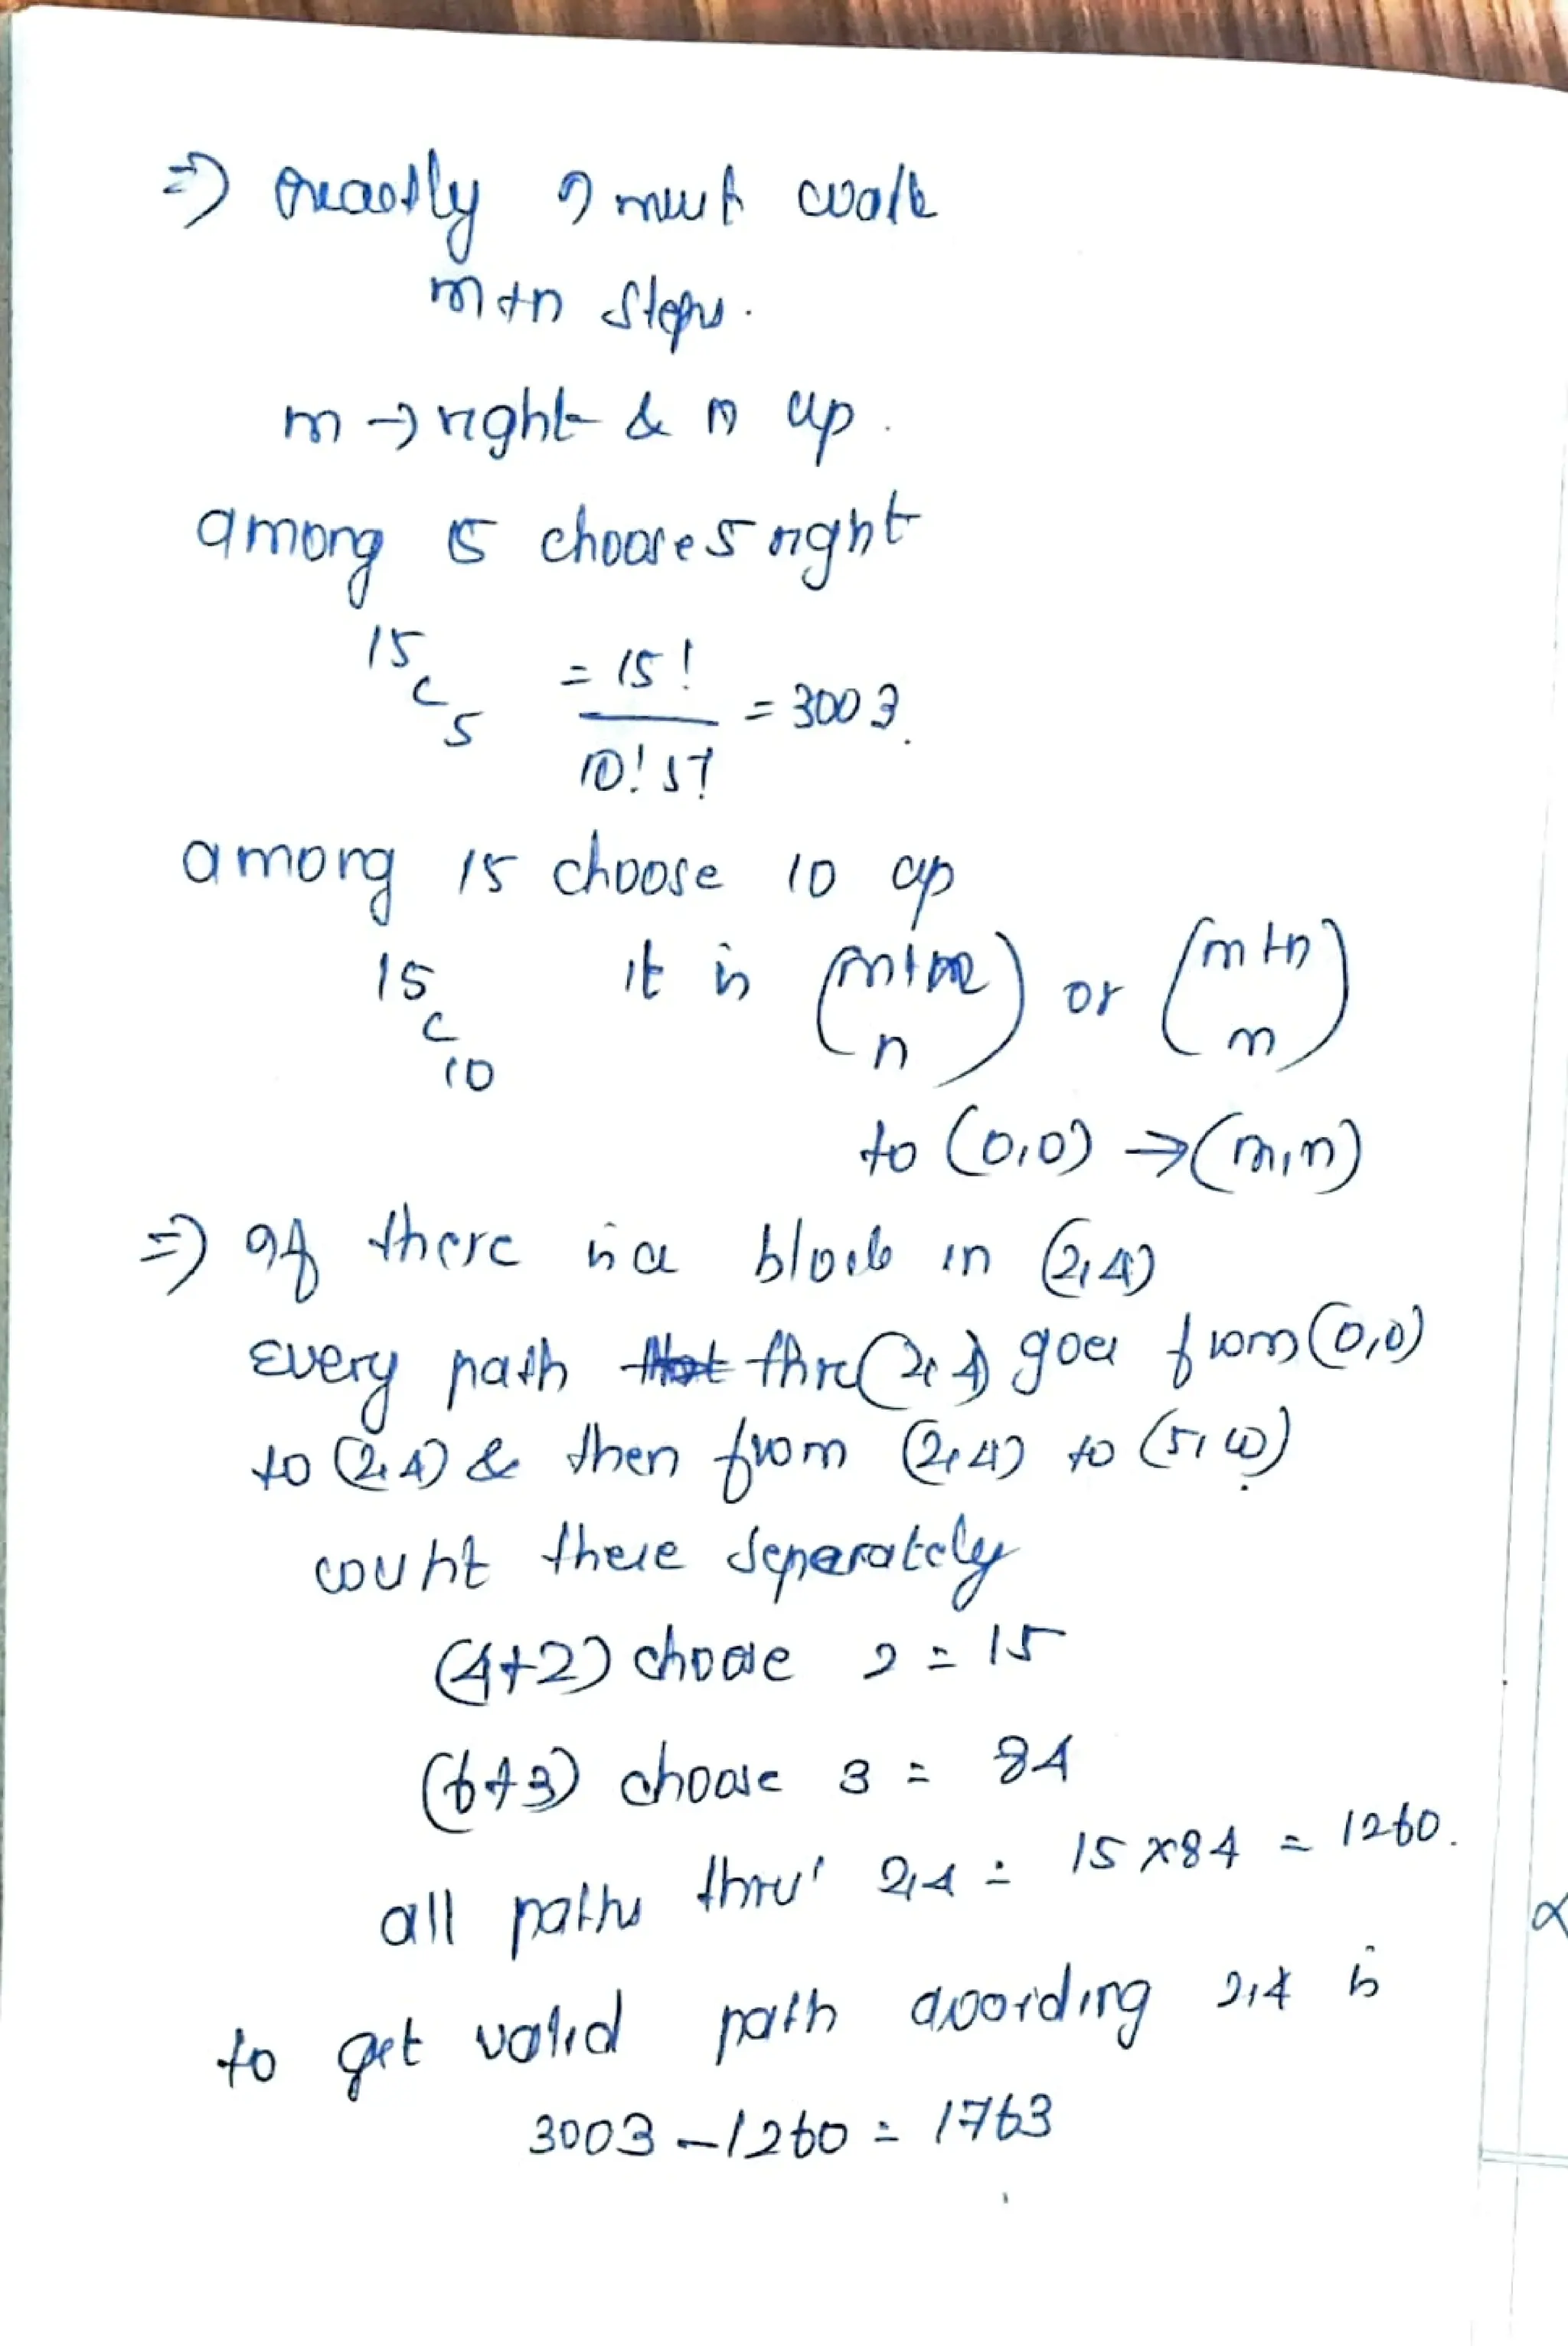 =) exactly I must walk
m+n steps.
m → right & n up.
among 15 choose 5 right
15C5 = 15! / 10! 5! = 3003.
among 15 choose 10 up
15C10 it is (m+n n) or (m+n m)
to (0,0) → (m,n)
=) If there is a block in (2,4)
Every path thru (2,4) goes from (0,0)
to (2,4) & then from (2,4) to (5,10).
count these separately
(4+2) choose 2 = 15
(6+3) choose 3 = 84
all paths thru' 2,4 = 15 x 84 = 1260.
to get valid path avoording 2,4 is
3003 - 1260 = 1763